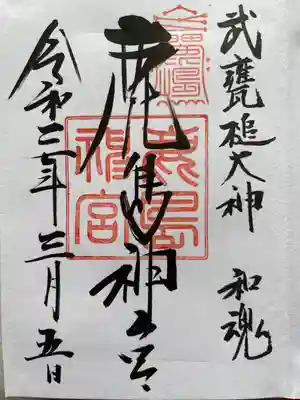 武甕槌大神 和魂
鹿島神宮
鹿島
神宮
令和二年三月五日